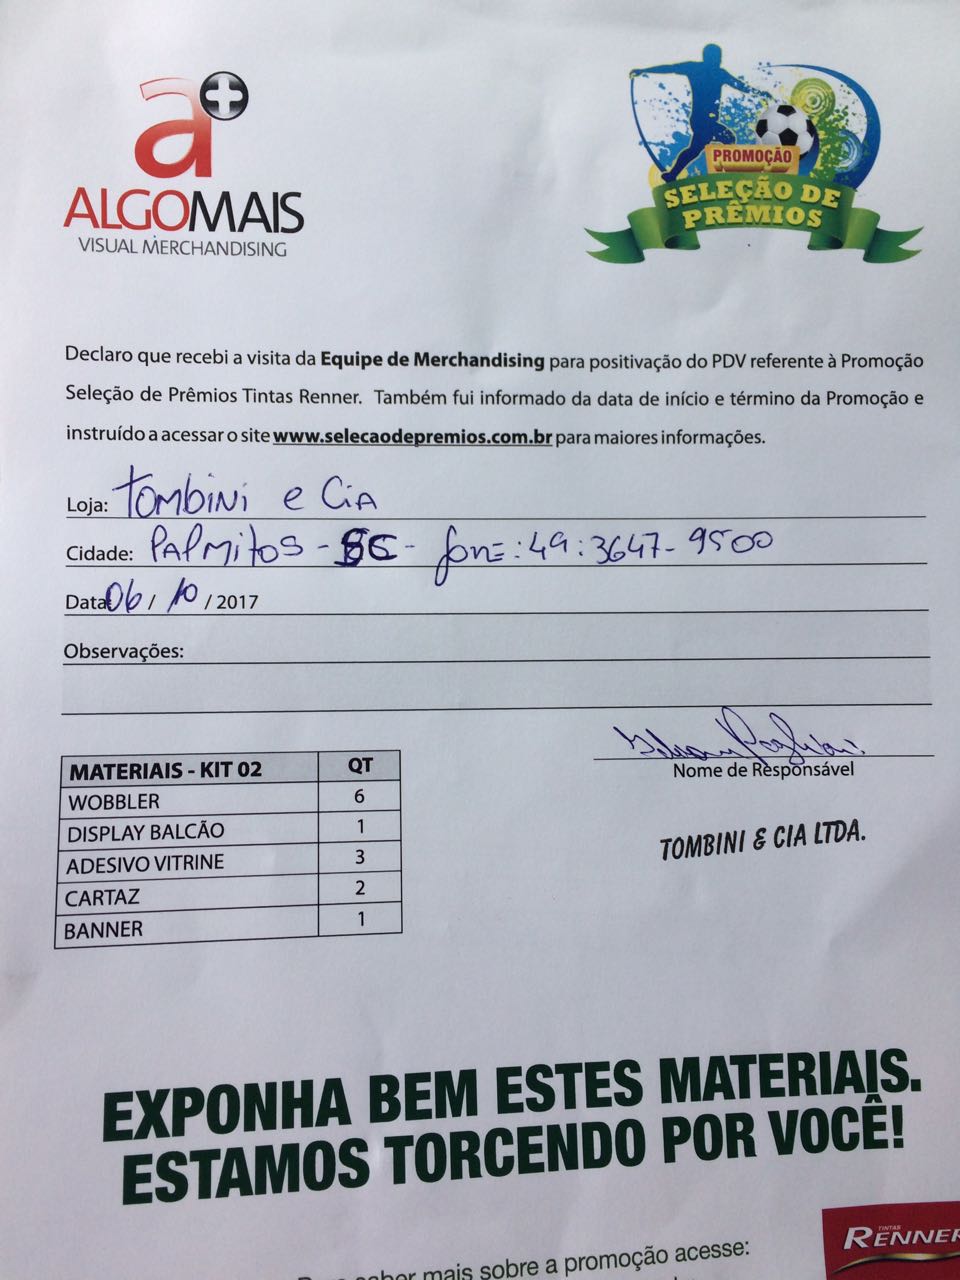 a+
ALGOMAIS
VISUAL MERCHANDISING
PROMOÇÃO
SELEÇÃO DE
PRÊMIOS
Declaro que recebi a visita da Equipe de Merchandising para positivação do PDV referente à Promoção
Seleção de Prêmios Tintas Renner. Também fui informado da data de início e término da Promoção e
instruído a acessar o site www.selecaodepremios.com.br para maiores informações.
Loja: Tombini e Cia
Cidade: PALMitOS - SC - fone: 49: 3647-9500
Data: 06 / 10 / 2017
Observações:
Nome de Responsável
TOMBINI & CIA LTDA.
MATERIAIS - KIT 02 QT
WOBBLER 6
DISPLAY BALCÃO 1
ADESIVO VITRINE 3
CARTAZ 2
BANNER 1
EXPONHA BEM ESTES MATERIAIS.
ESTAMOS TORCENDO POR VOCÊ!
TINTAS
RENNER
saber mais sobre a promoção acesse: